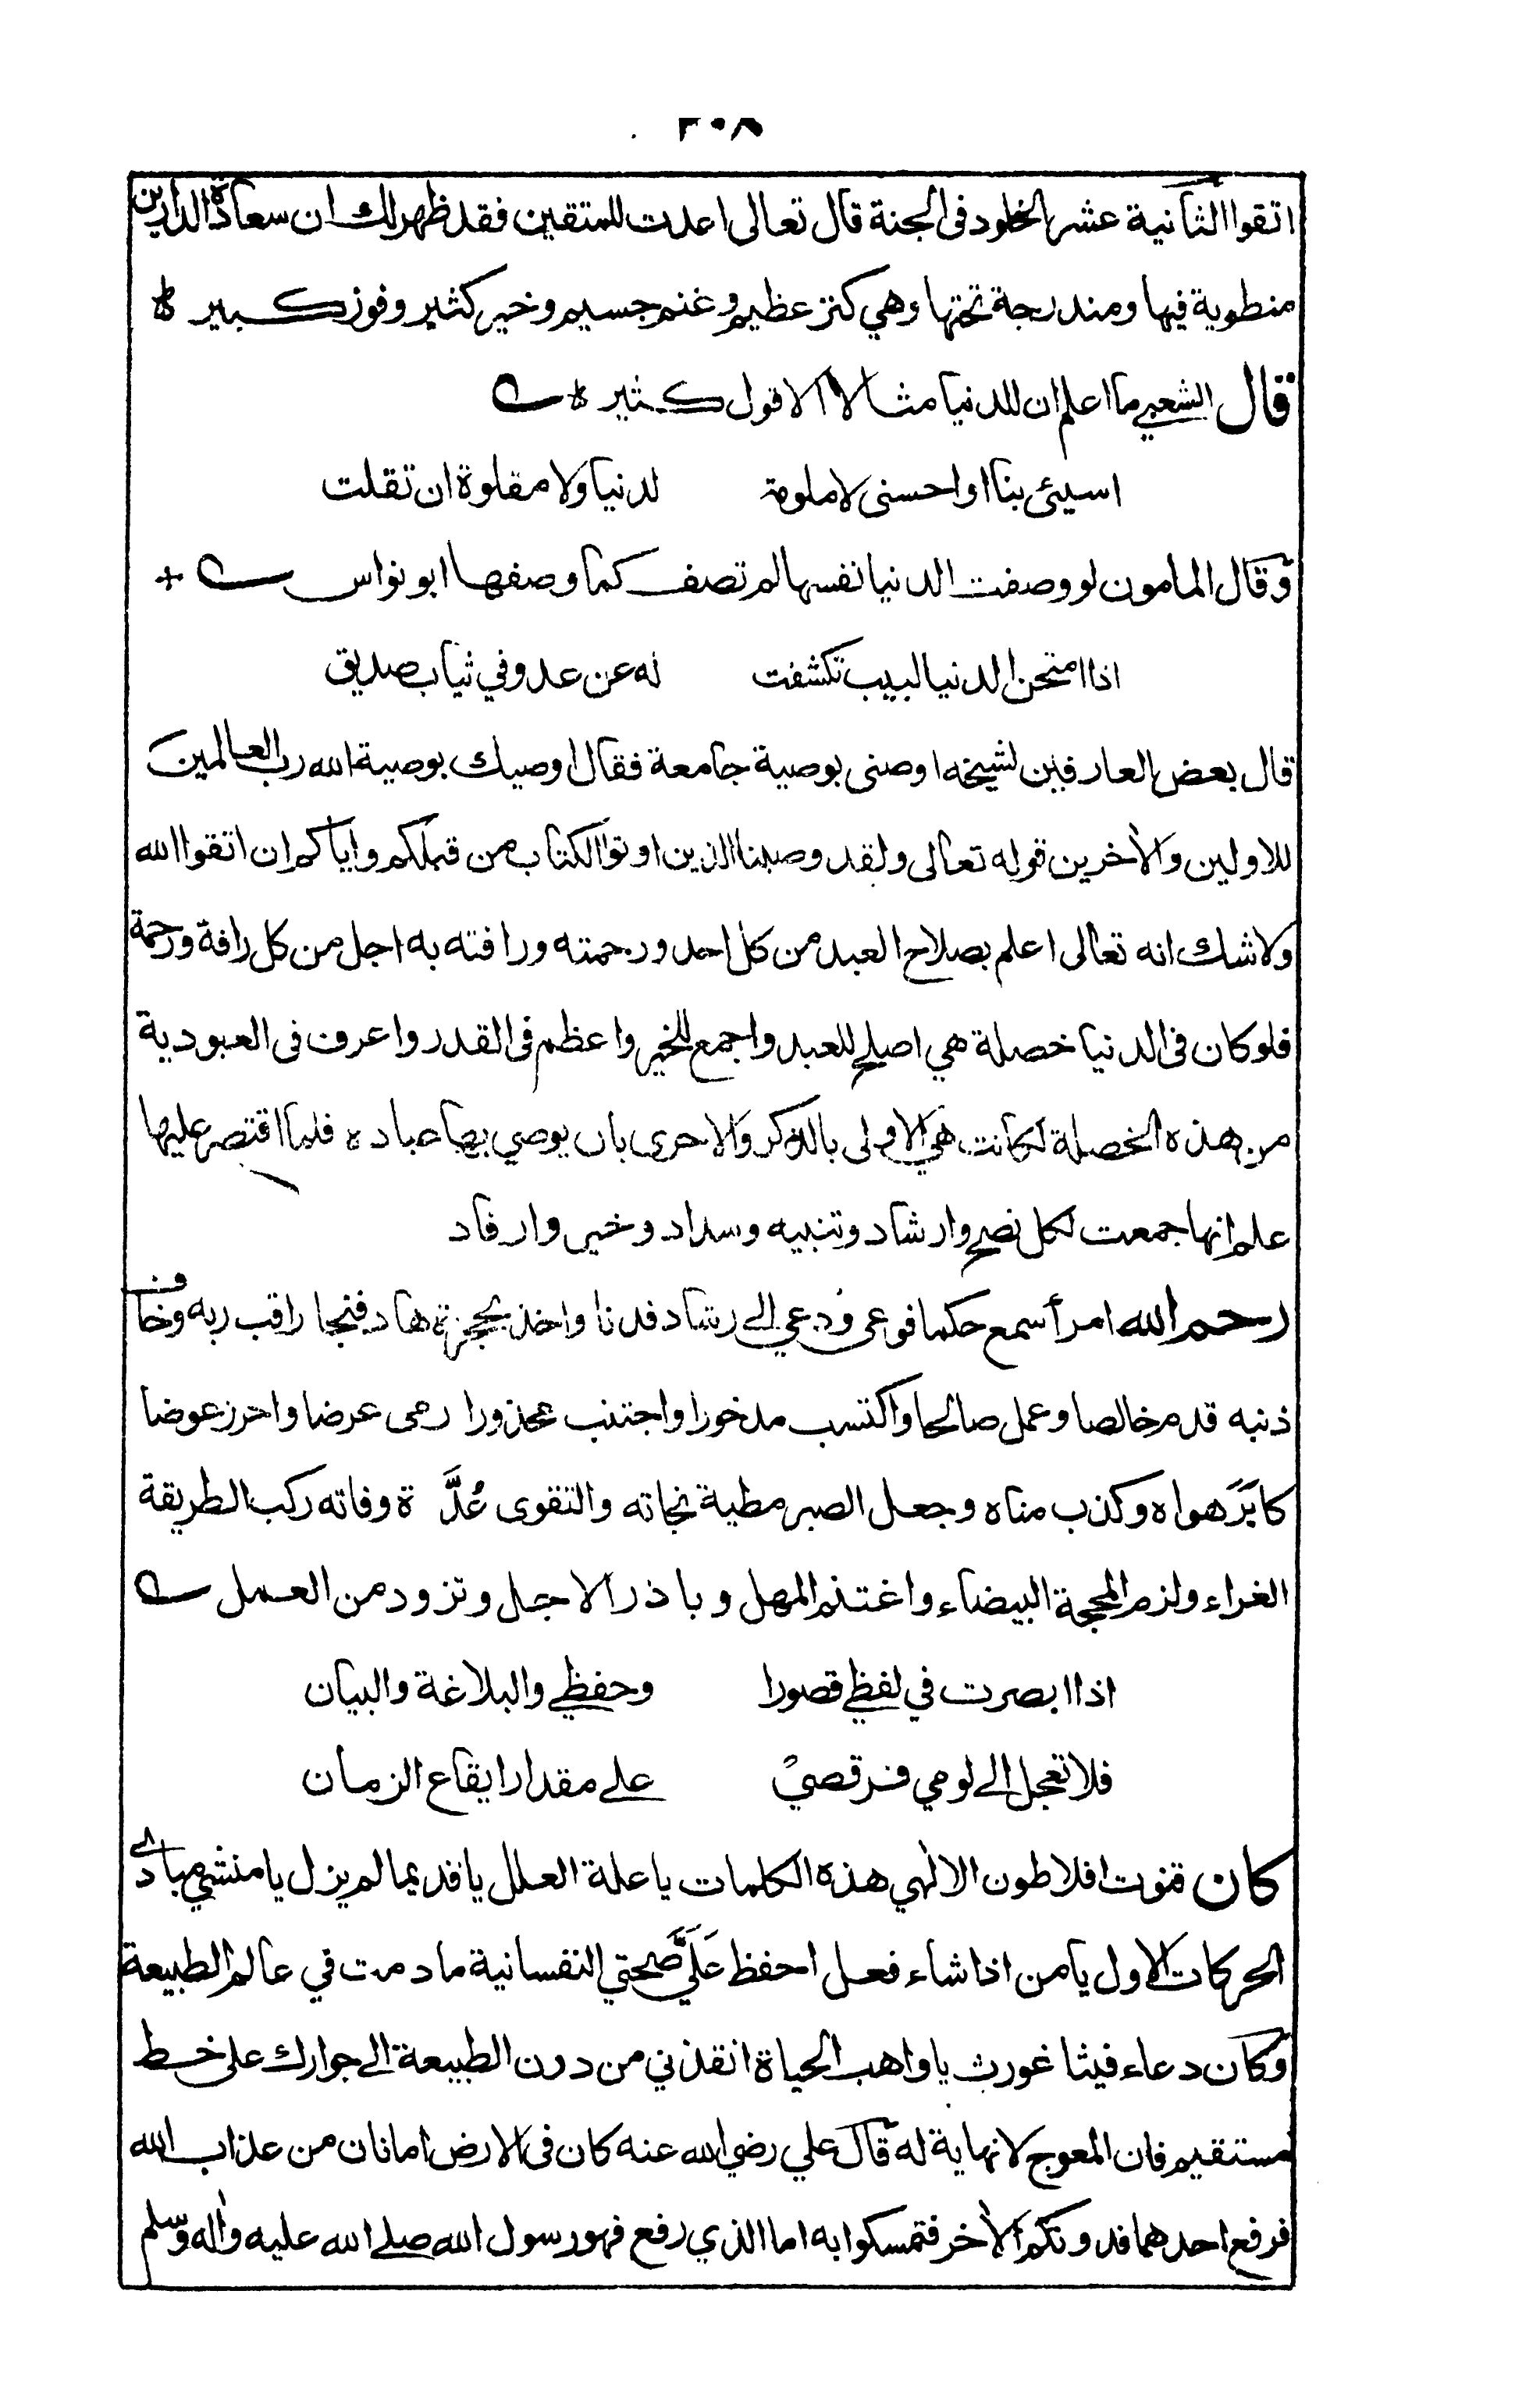 ٢٠٨
اتقوا الثانية عشر الخلود فى الجنة قال تعالى اعدت للمتقين فقد ظهر لك ان سعادة الدارين
منطوية فيها ومندرجة تحتها وهي كنز عظيم وغنم جسيم وخير كثير وفوز كبير
قال الشعبي ما اعلم ان للدنيا مثالا الا قول كثير
اسيئى بنا او احسنى لا ملومة لدنيا ولا مقلوة ان تقلت
وقال المامون لو وصفت الدنيا نفسها لم تصف كما وصفها ابو نواس
اذا امتحن الدنيا لبيب تكشفت له عن عدو في ثياب صديق
قال بعض العارفين لشيخه اوصنى بوصية جامعة فقال اوصيك بوصية الله رب العالمين
للاولين والأخرين قوله تعالى ولقد وصينا الذين اوتوا الكتاب من قبلكم واياكم ان اتقوا الله
ولاشك انه تعالى اعلم بصلاح العبد من كل احد ورحمته ورافته به اجل من كل رافة ورحمة
فلو كان فى الدنيا خصلة هي اصلح للعبد واجمع للخير واعظم فى القدر واعرف فى العبودية
من هذه الخصلة لكانت هي الاولى بالذكر والاحرى بان يوصي بها عباده فلما اقتصر عليها
علم انها جمعت لكل نصح وارشاد وتنبيه وسداد وخير وارفاد
رحم الله امرأ سمع حكما فوعى ودعي الى رشاد فدنا واخذ بحجزة هاد فنجا راقب ربه وخاف
ذنبه قدم خالصا وعمل صالحا واكتسب مدخورا واجتنب محذورا رمى عرضا واحرز عوضا
كابَرَ هواه وكذب مناه وجعل الصبر مطية نجاته والتقوى عُدَّة وفاته ركب الطريقة
الغراء ولزم المحجة البيضاء واغتنم المهل وباذر الاجل وتزود من العمل
اذا ابصرت في لفظي قصورا وحفظي والبلاغة والبيان
فلا تعجل الى لومي فرقصي على مقدار ايقاع الزمان
كان قنوت افلاطون الالٰهي هذه الكلمات يا علة العلل يا قديما لم يزل يا منشي مبادي
الحركات الاول يا من اذا شاء فعل احفظ عَلَيَّ صحتي النفسانية ما دمت في عالم الطبيعة
وكان دعاء فيثاغورث يا واهب الحياة انقذني من درن الطبيعة الى جوارك على خط
مستقيم فان المعوج لا نهاية له قال علي رضي الله عنه كان فى الارض امانان من عذاب الله
فرفع احدهما فدونكم الأخر فتمسكوا به اما الذي رفع فهو رسول الله صلى الله عليه وأله وسلم